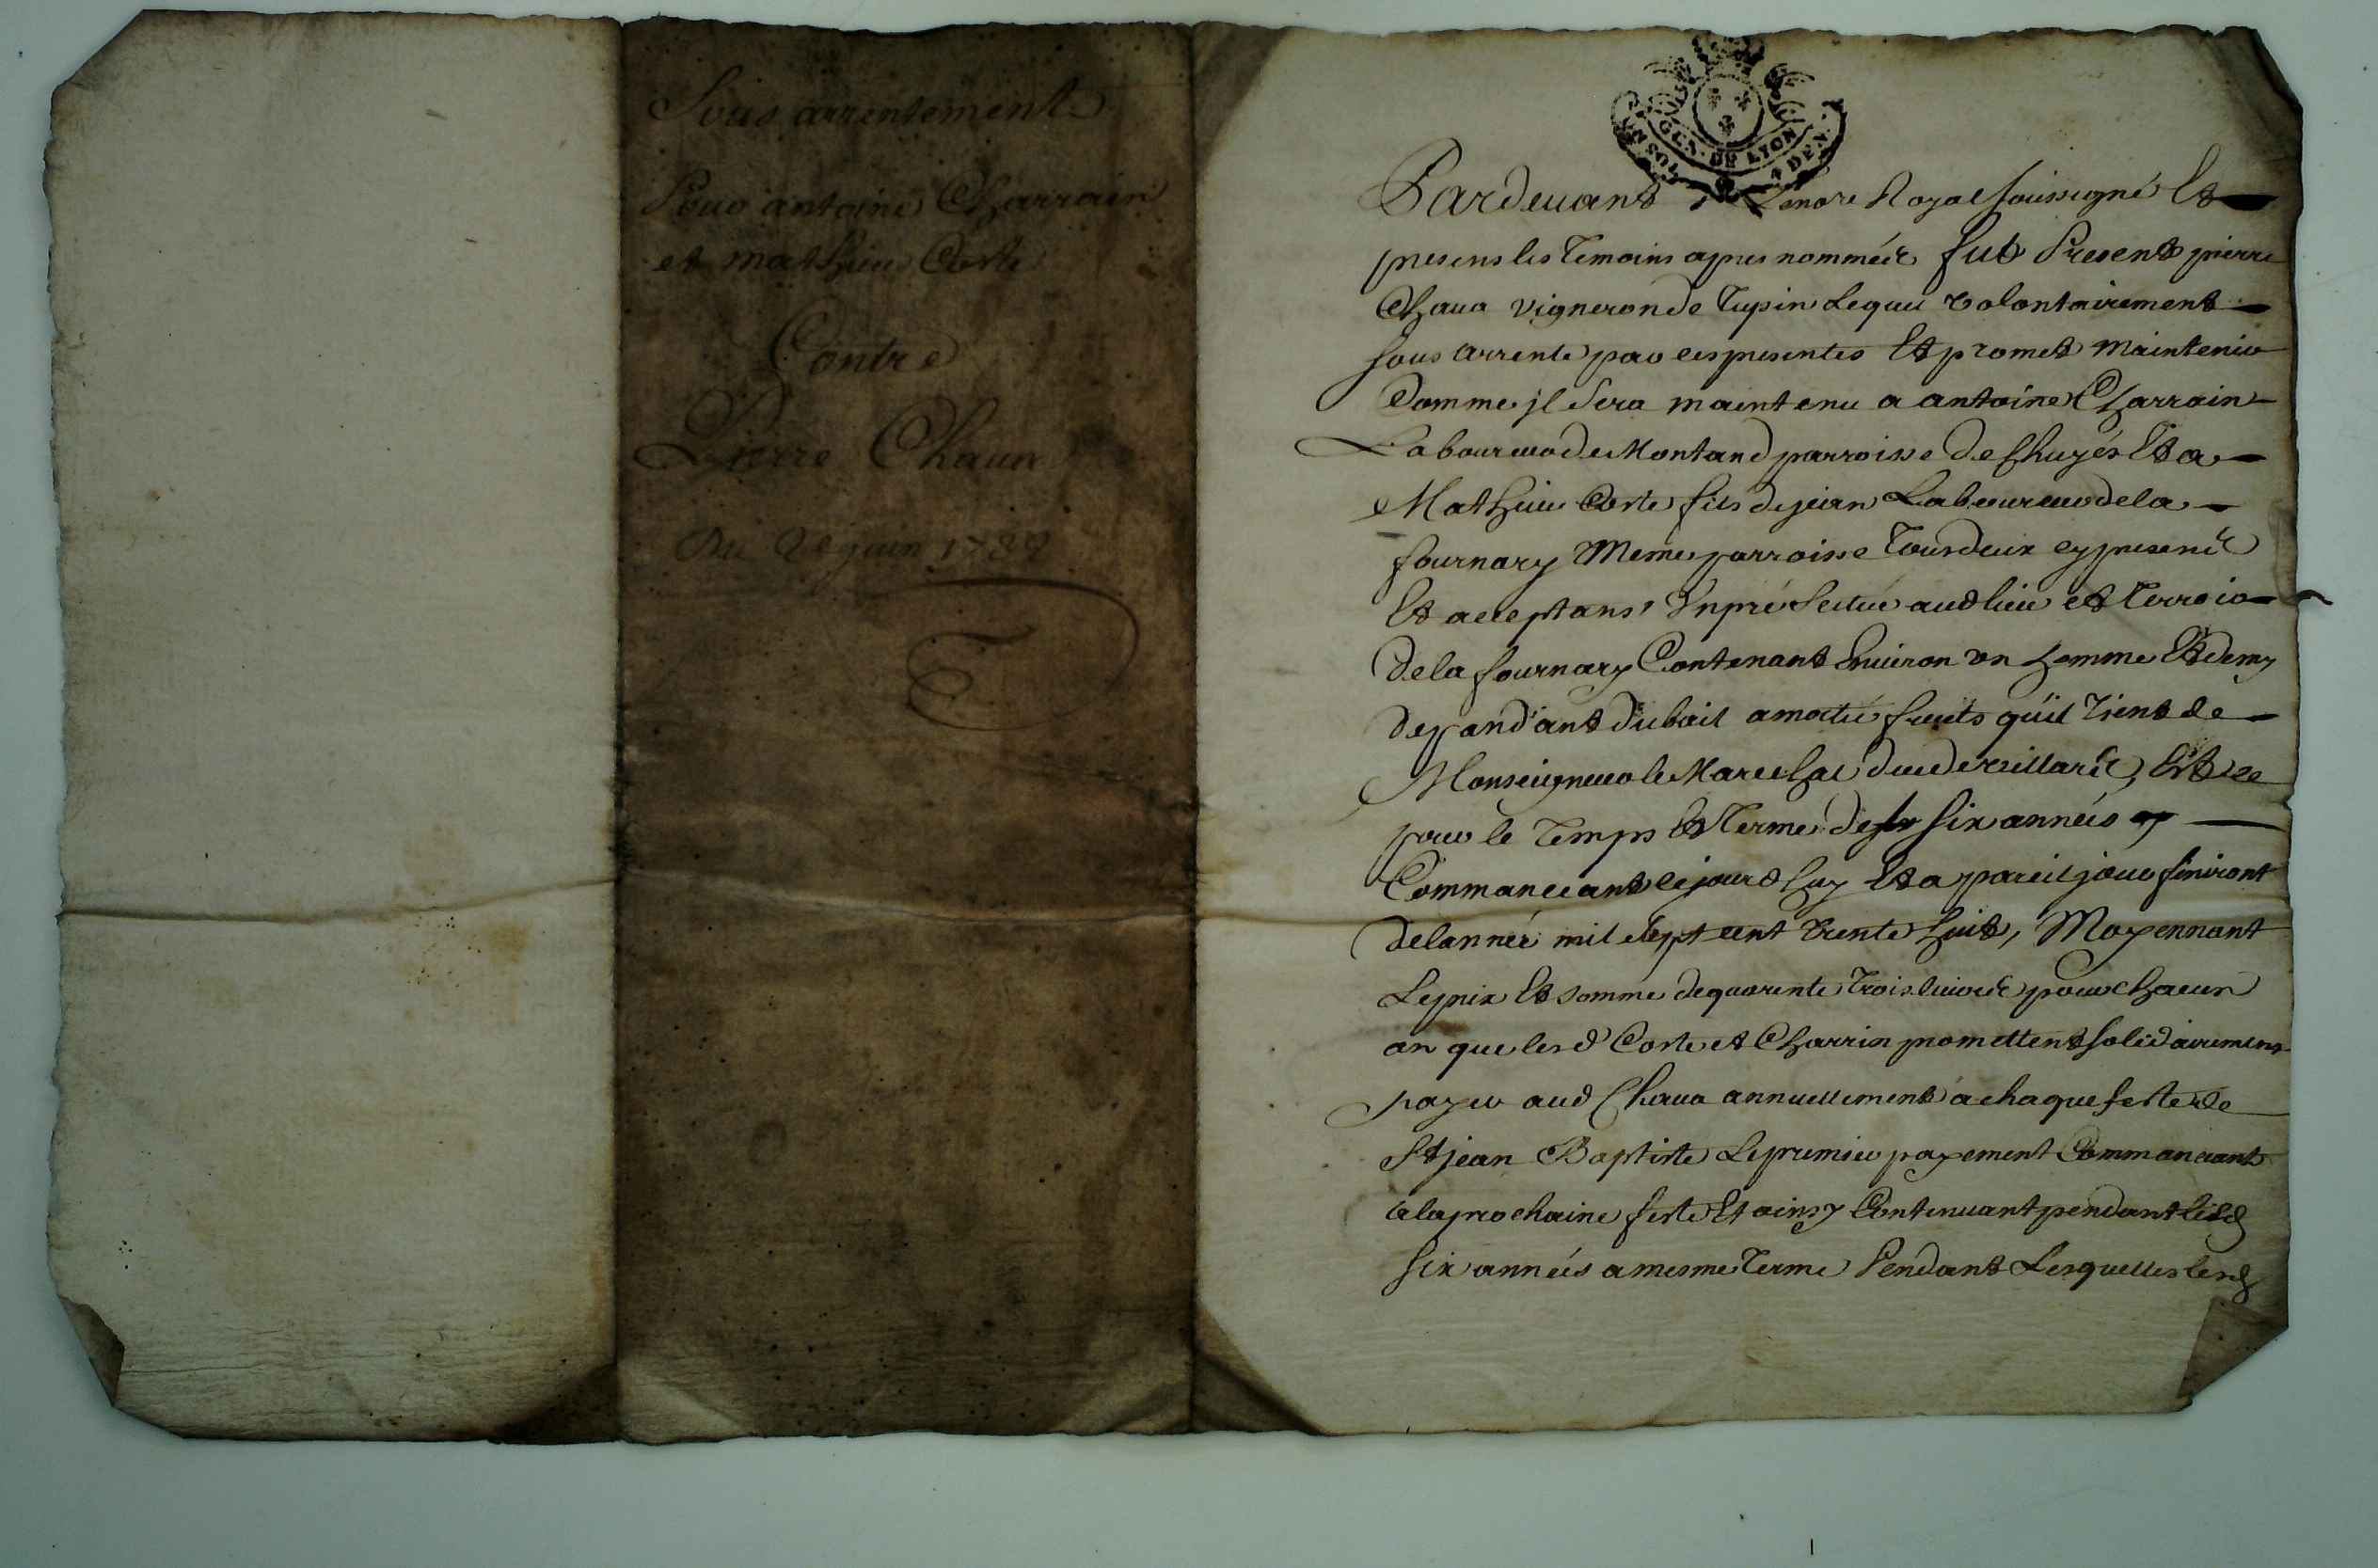 Sous arrentement
Pour antoine Charrain
et mathieu Corte
Contre
Pierre Chaua
Du juin
GEN. DE LYON
SOL DEN.
Pardevant Royal soussigné Et
presens les temoins apres nommés fut Present pierre
Chaua vigneron de Tupin Lequel volontairement
sous arrente par ces presentes Et promet maintenir
Comme jl sera maintenu a antoine Charrain
Laboureur de Montand parroisse de Chuyés Et a
Mathieu Corte fils de jean Laboureur de la
fournary Meme parroisse Tous deux cy presens
Et aceptans Un pré scitué aud lieu et Terroir
de la fournary Contenant Environ un homme Et demy
depandant du bail a moitié fruits qu'il tient de
Monseigneur le Marechal duc de villars, Et ce
pour le Temps Et Terme de six années
Commanceant cejourdhuy Et a pareil jour finiront
de lannée mil sept cent trente huit, Moyennant
Le prix Et somme de quarente trois livres pour chacun
an que lesd Corte et Charrin promettent solidairement
payer aud Chaua annuellement a chaque feste de
St jean Baptiste Le premier payement Commanceant
a la prochaine feste Et ainsy Continuant pendant lesd
six années a mesme terme Pendant Lesquelles lesd